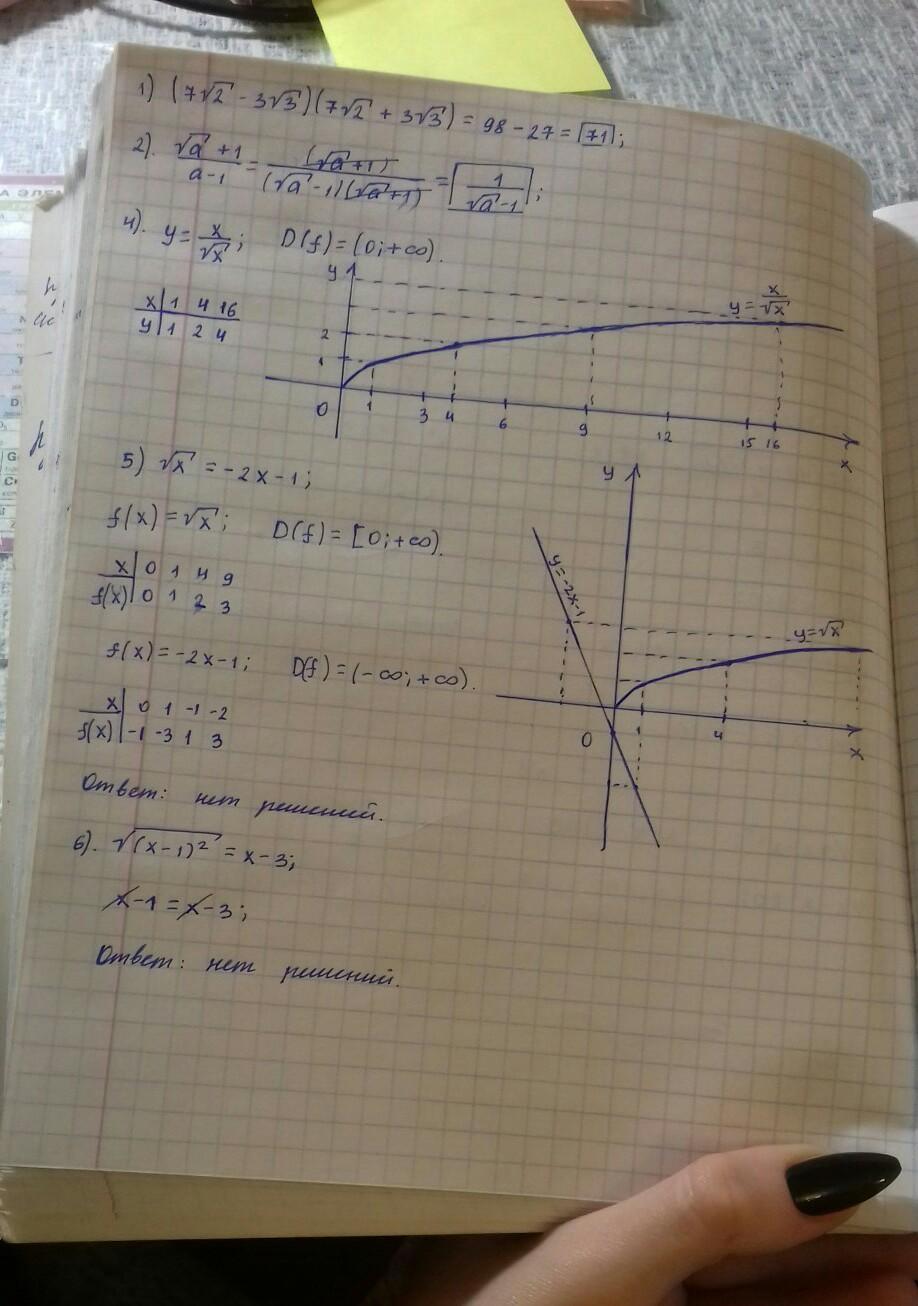 1) (7√2 - 3√3)(7√2 + 3√3) = 98 - 27 = 71;
2). (√a + 1)/(a - 1) = (√a + 1)/((√a - 1)(√a + 1)) = 1/(√a - 1);
4). y = x/√x; D(f) = (0; +∞).
x 1 4 16
y 1 2 4
y
y = x/√x
2
1
0 1 3 4 6 9 12 15 16
x
5) √x = -2x - 1;
f(x) = √x; D(f) = [0; +∞).
x 0 1 4 9
f(x) 0 1 2 3
f(x) = -2x - 1; D(f) = (-∞; +∞).
x 0 1 -1 -2
f(x) -1 -3 1 3
y
y = -2x - 1
y = √x
0 4
x
Ответ: нет решений.
6). √(x - 1)² = x - 3;
x - 1 = x - 3;
Ответ: нет решений.